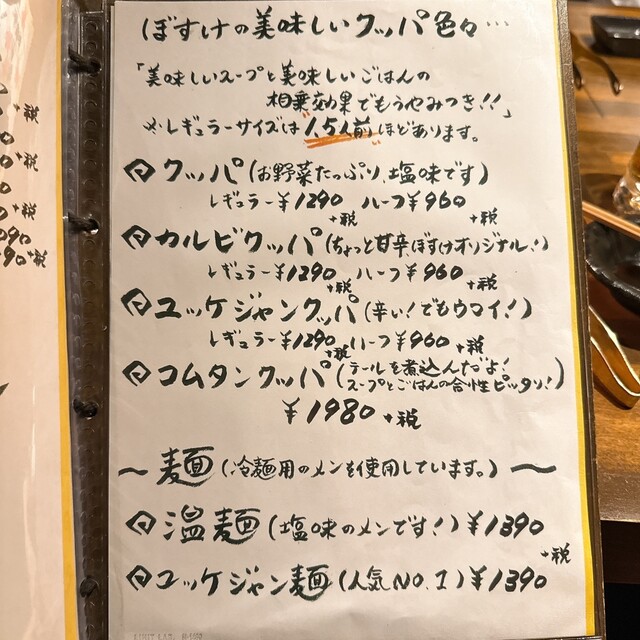 +税
+税
+税
+税
090
90+税
ぼすけの美味しいクッパ色々…
「美味しいスープと美味しいごはんの
相乗効果でもうやみつき!!」
※レギュラーサイズは1.5人前ほどあります。
クッパ(お野菜たっぷり、塩味です)
レギュラー¥1290 ハーフ¥960
+税 +税
カルビクッパ(ちょっと甘辛、ぼすけオリジナル!)
レギュラー¥1290 ハーフ¥960
+税 +税
ユッケジャンクッパ(辛い!でもウマイ!)
レギュラー¥1290 ハーフ¥960
+税 +税
コムタンクッパ(テールを煮込んだよ!
スープとごはんの合性ピッタリ!)
¥1980+税
〜麺(冷麺用のメンを使用しています。)〜
温麺(塩味のメンです!)¥1390
+税
ユッケジャン麺(人気NO.1)¥1390